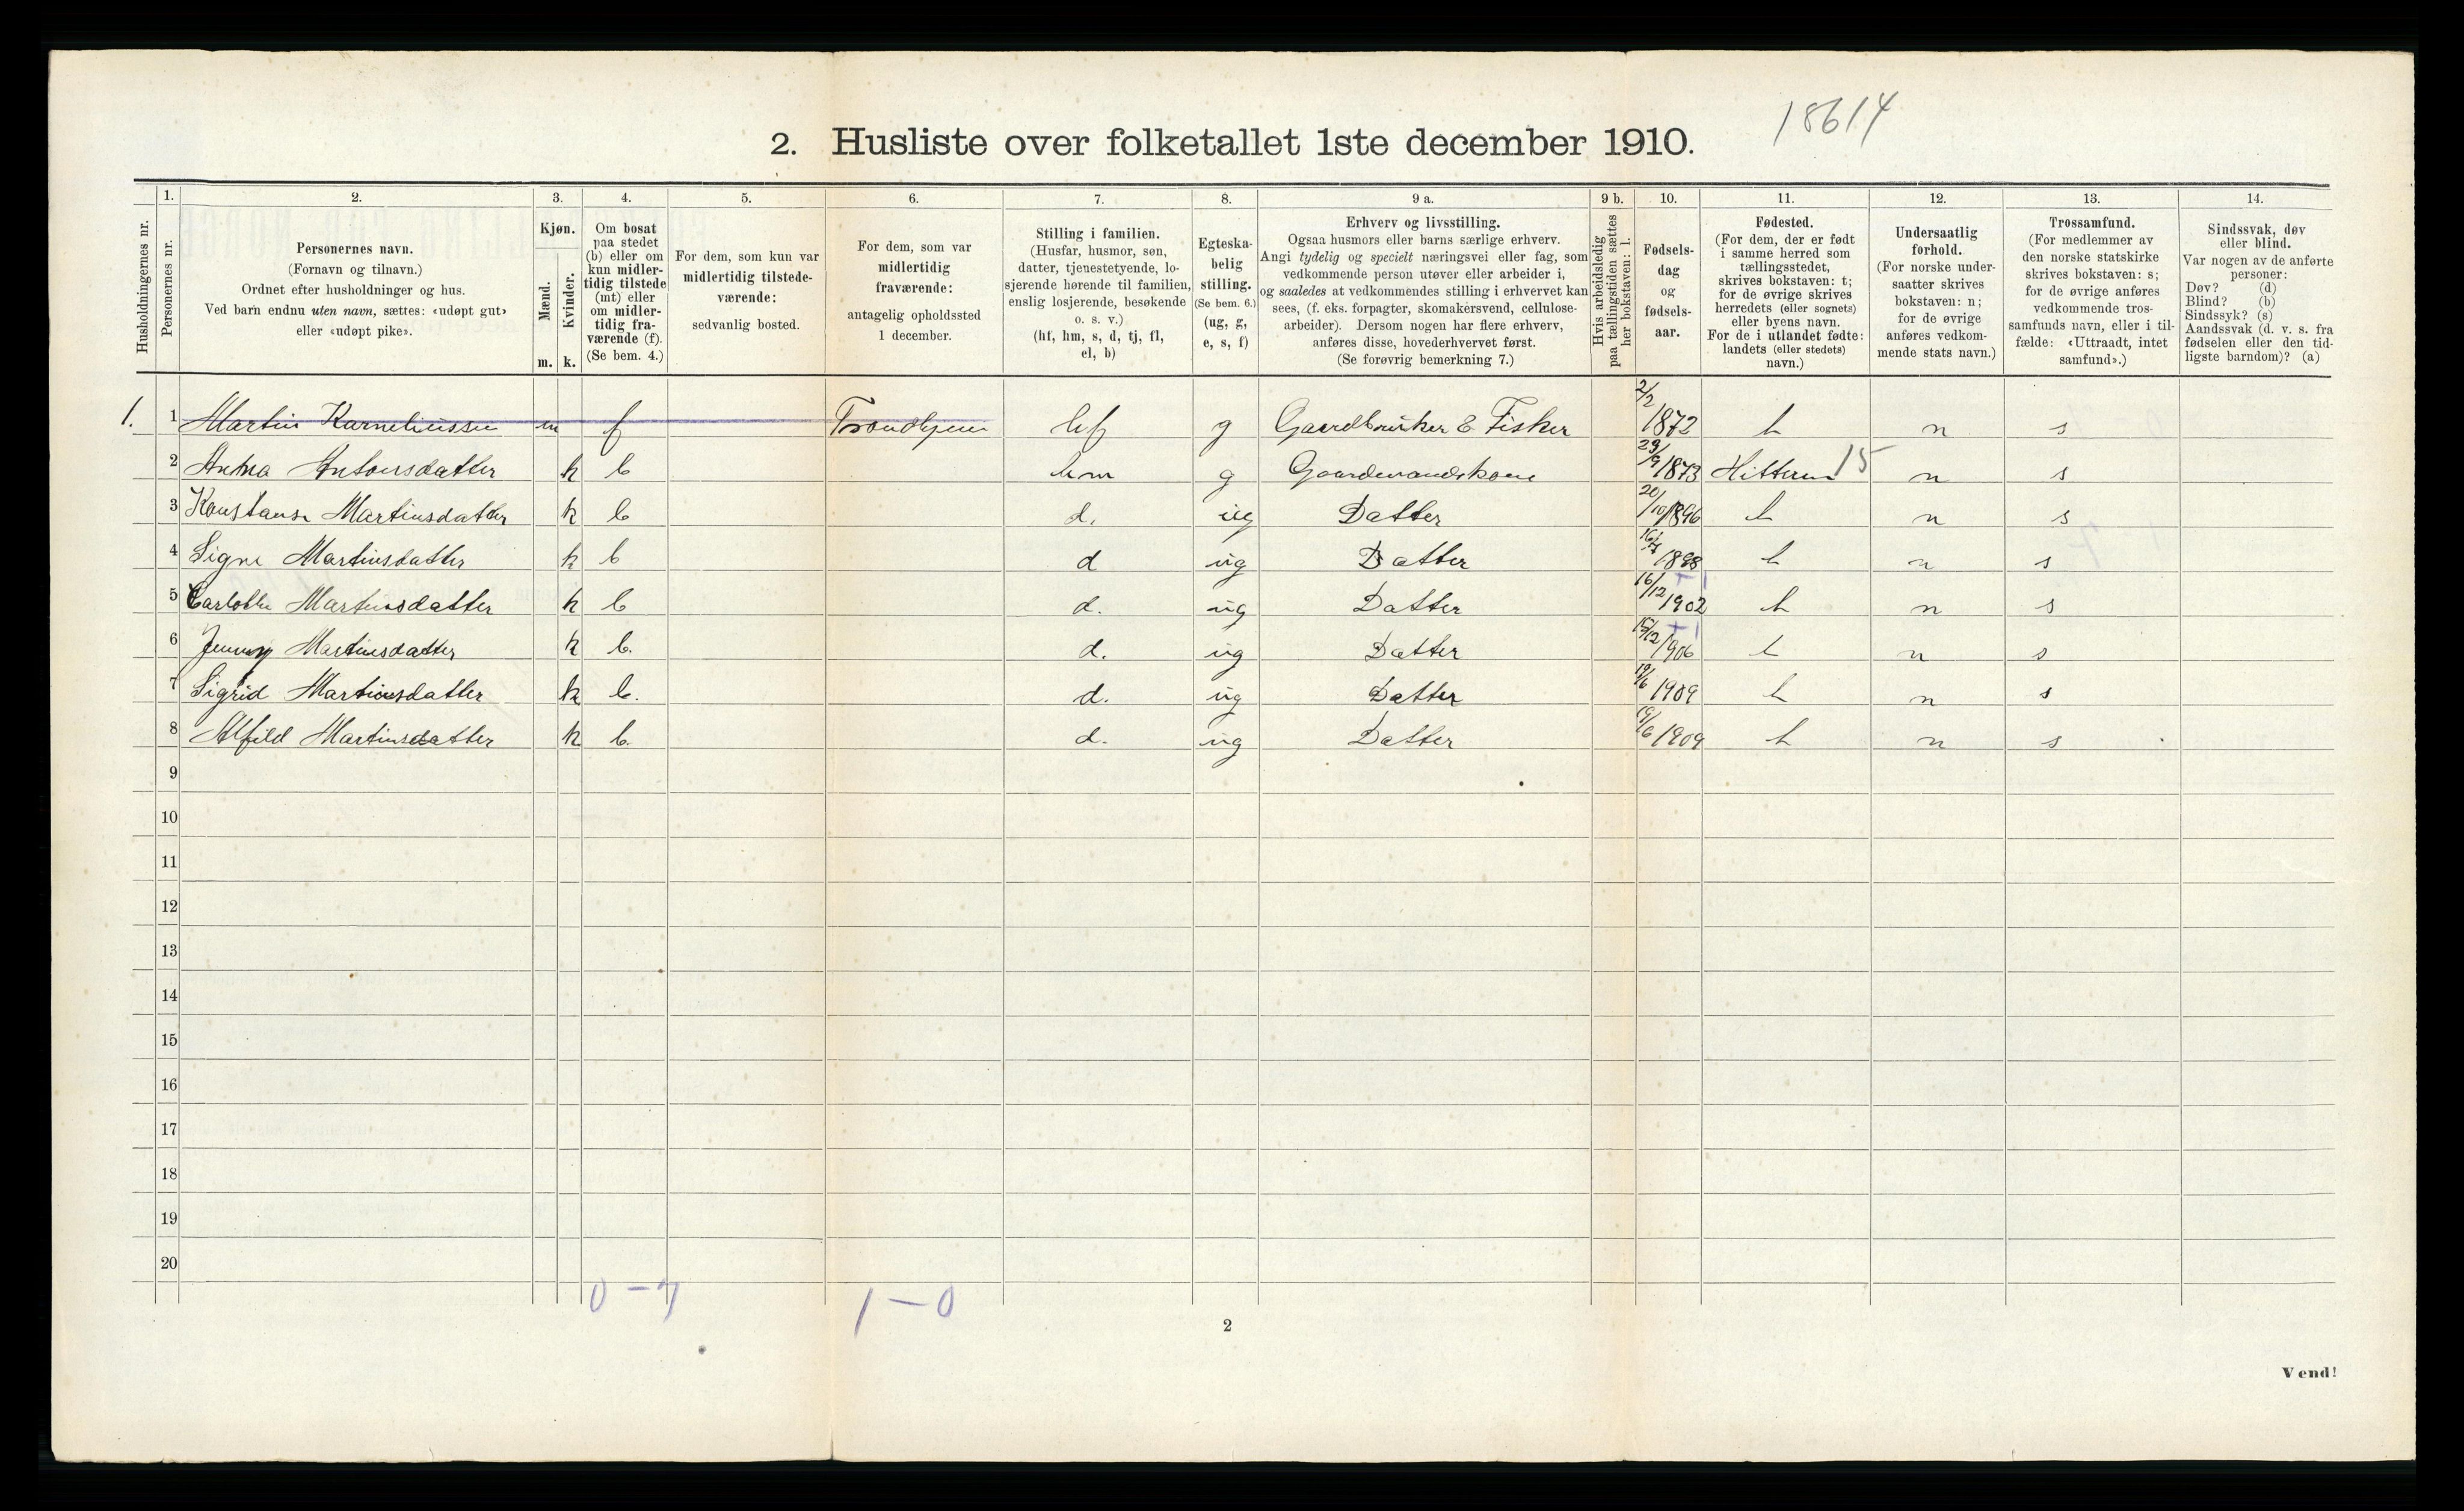 18614
2. Husliste over folketallet 1ste december 1910.
Husholdningernes nr.
1. Personernes nr.
2. Personernes navn.
(Fornavn og tilnavn.)
Ordnet efter husholdninger og hus.
Ved barn endnu uten navn, sættes: «udøpt gut»
eller «udøpt pike».
3. Kjøn.
Mænd. m.
Kvinder. k.
4. Om bosat
paa stedet
(b) eller om
kun midler-
tidig tilstede
(mt) eller
om midler-
tidig fra-
værende (f).
(Se bem. 4.)
5. For dem, som kun var
midlertidig tilstede-
værende:
sedvanlig bosted.
6. For dem, som var
midlertidig
fraværende:
antagelig opholdssted
1 december.
7. Stilling i familien.
(Husfar, husmor, søn,
datter, tjenestetyende, lo-
sjerende hørende til familien,
enslig losjerende, besøkende
o. s. v.)
(hf, hm, s, d, tj, fl,
el, b)
8. Egteska-
belig
stilling.
(Se bem. 6.)
(ug, g,
e, s, f)
9 a. Erhverv og livsstilling.
Ogsaa husmors eller barns særlige erhverv.
Angi tydelig og specielt næringsvei eller fag, som
vedkommende person utøver eller arbeider i,
og saaledes at vedkommendes stilling i erhvervet kan
sees, (f. eks. forpagter, skomakersvend, cellulose-
arbeider). Dersom nogen har flere erhverv,
anføres disse, hovederhvervet først.
(Se forøvrig bemerkning 7.)
9 b. Hvis arbeidsledig
paa tællingstiden sættes
her bokstaven: l.
10. Fødsels-
dag
og
fødsels-
aar.
11. Fødested.
(For dem, der er født
i samme herred som
tællingsstedet,
skrives bokstaven: t;
for de øvrige skrives
herredets (eller sognets)
eller byens navn.
For de i utlandet fødte:
landets (eller stedets)
navn.)
12. Undersaatlig
forhold.
(For norske under-
saatter skrives
bokstaven: n;
for de øvrige
anføres vedkom-
mende stats navn.)
13. Trossamfund.
(For medlemmer av
den norske statskirke
skrives bokstaven: s;
for de øvrige anføres
vedkommende tros-
samfunds navn, eller i til-
fælde: «Uttraadt, intet
samfund».)
14. Sindssvak, døv
eller blind.
Var nogen av de anførte
personer:
Døv? (d)
Blind? (b)
Sindssyk? (s)
Aandssvak (d. v. s. fra
fødselen eller den tid-
ligste barndom)? (a)
1. 1 Martin Karneliussen m f Trondhjem hf g Gaardbruker & Fisker 2/2 1872 t n s
2 Anna Antonsdatter k b hm g Gaardmandskone 29/9 1873 Hitteren 15 n s
3 Konstanse Martinsdatter k b d. ug Datter 20/10 1896 t n s
4 Signe Martinsdatter k b d ug Datter 1898 t n s
5 Martinsdatter k b d. ug Datter 16/12 1902 t n s
6 Jenny Martinsdatter k b. d. ug Datter 15/12 1906 t n s
7 Sigrid Martinsdatter k b. d. ug Datter 19/6 1909 t n s
8 Alfild Martinsdatter k b. d. ug Datter 19/6 1909 t n s
9
10
11
12
13
14
15
16
17
18
19
20
0 – 7 1 – 0
2
Vend!